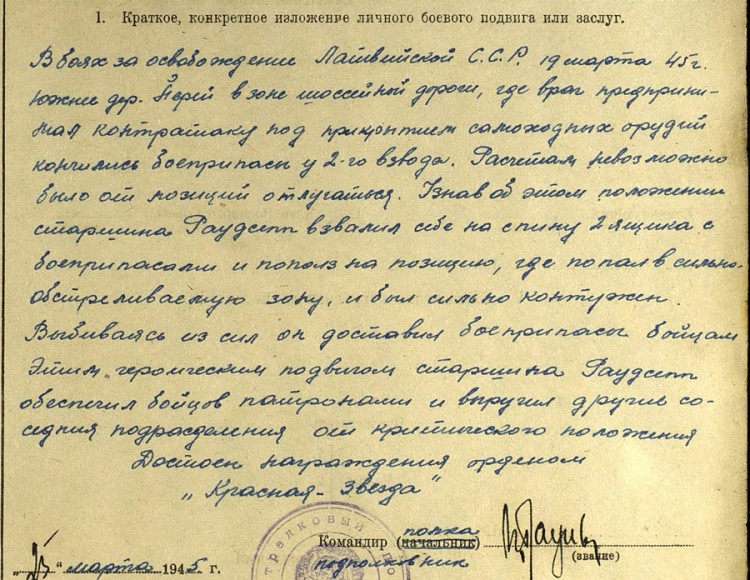 1. Краткое, конкретное изложение личного боевого подвига или заслуг.
В боях за освобождение Латвийской С.С.Р. 19 марта 45 г.
южнее дер. Перей в зоне шоссейной дороги, где враг предприни-
мал контратаку под прикрытием самоходных орудий
кончились боеприпасы у 2-го взвода. Расчетам невозможно
было от позиций отлучаться. Узнав об этом положении
старшина Раудсепп взвалил себе на спину 2 ящика с
боеприпасами и пополз на позицию, где попал в сильно-
обстреливаемую зону, и был сильно контужен.
Выбиваясь из сил он доставил боеприпасы бойцам
Этим героическим подвигом старшина Раудсепп
обеспечил бойцов патронами и выручил другие со-
седния подразделения от критического положения
Достоен награждения орденом
„Красная-Звезда"
Командир (начальник) полка
(звание)
подполковник
" марта 1945 г.
стрелковый